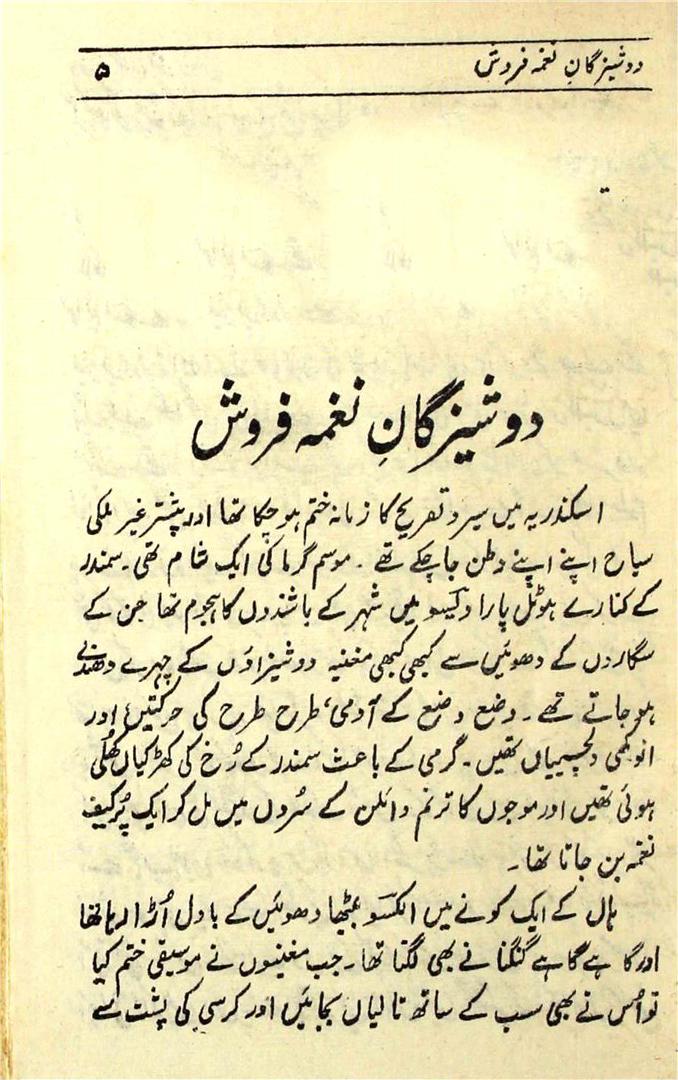 دوشیزگانِ نغمہ فروش
۵
دوشیزگانِ نغمہ فروش
اسکندریہ میں سیر و تفریح کا زمانہ ختم ہو چکا تھا اور بیشتر غیر ملکی
سیاح اپنے اپنے وطن جا چکے تھے ۔ موسم گرما کی ایک شام تھی ۔ سمندر
کے کنارے ہوٹل پارا ڈیسو میں شہر کے باشندوں کا ہجوم تھا جن کے
سگاروں کے دھوئیں سے کبھی کبھی مغنیہ دوشیزاؤں کے چہرے دھندلے
ہو جاتے تھے ۔ وضع وضع کے آدمی، طرح طرح کی حرکتیں اور
انوکھی دلچسپیاں تھیں ۔ گرمی کے باعث سمندر کے رُخ کی کھڑکیاں کھلی
ہوئی تھیں اور موجوں کا ترنم وائلن کے سُروں میں مل کر ایک پُر کیف
نغمہ بن جاتا تھا ۔
ہال کے ایک کونے میں الکسو بیٹھا دھوئیں کے بادل اُڑا رہا تھا
اور گاہے گاہے گنگنانے بھی لگتا تھا ۔ جب مغنیوں نے موسیقی ختم کیا
تو اُس نے بھی سب کے ساتھ تالیاں بجائیں اور کرسی کی پشت سے